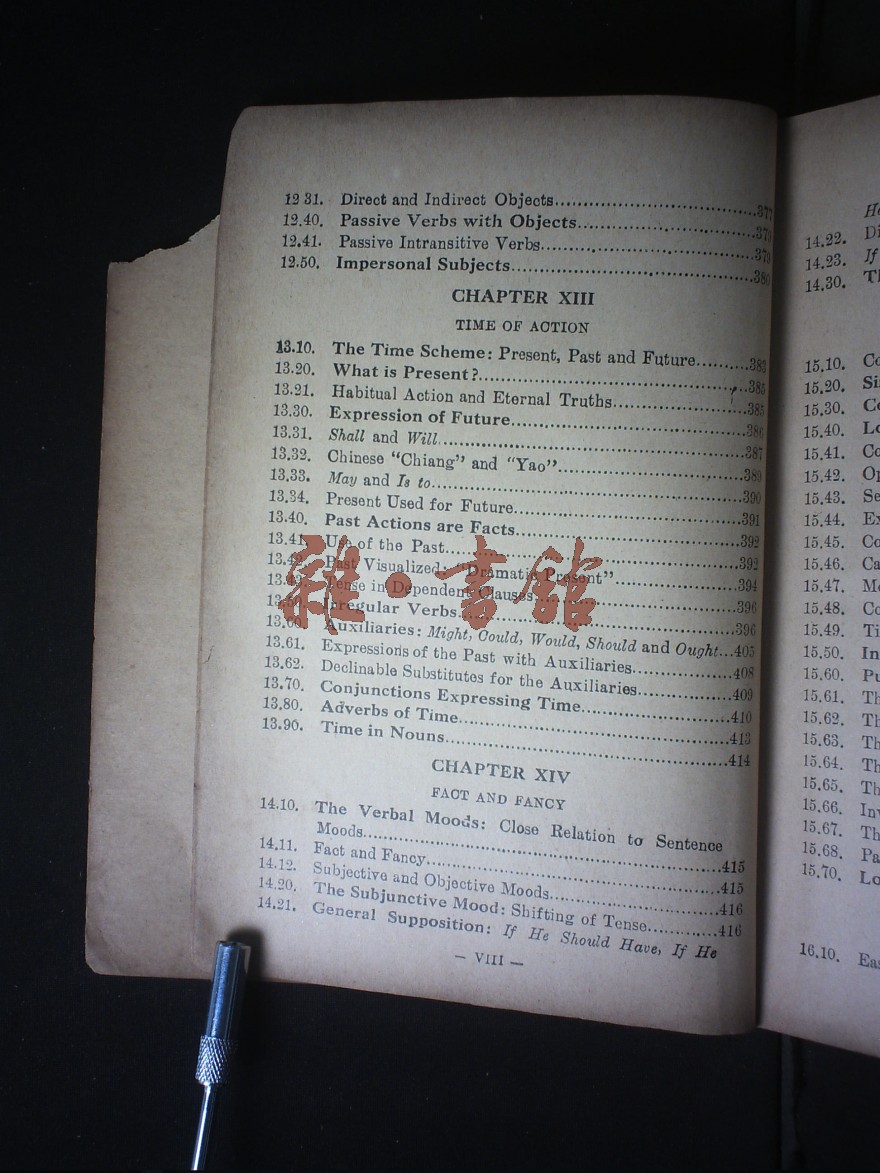 12 31. Direct and Indirect Objects..........377
12.40. Passive Verbs with Objects..........
12.41. Passive Intransitive Verbs..........379
12.50. Impersonal Subjects..........380
CHAPTER XIII
TIME OF ACTION
13.10. The Time Scheme: Present, Past and Future..........383
13.20. What is Present?..........385
13.21. Habitual Action and Eternal Truths..........385
13.30. Expression of Future..........386
13.31. Shall and Will..........387
13.32. Chinese "Chiang" and "Yao"..........389
13.33. May and Is to..........390
13.34. Present Used for Future..........391
13.40. Past Actions are Facts..........392
13.41. Use of the Past..........392
13.42. Past Visualized: "Dramatic Present"..........394
13.43. Tense in Dependent Clauses..........396
13.50. Irregular Verbs..........396
13.60. Auxiliaries: Might, Could, Would, Should and Ought...405
13.61. Expressions of the Past with Auxiliaries..........408
13.62. Declinable Substitutes for the Auxiliaries..........409
13.70. Conjunctions Expressing Time..........410
13.80. Adverbs of Time..........413
13.90. Time in Nouns..........414
CHAPTER XIV
FACT AND FANCY
14.10. The Verbal Moods: Close Relation to Sentence
Moods..........415
14.11. Fact and Fancy..........415
14.12. Subjective and Objective Moods..........416
14.20. The Subjunctive Mood: Shifting of Tense..........416
14.21. General Supposition: If He Should Have, If He
— VIII —
雜·書館
14.22.
14.23. If
14.30.
15.10.
15.20.
15.30.
15.40.
15.41.
15.42.
15.43.
15.44.
15.45.
15.46.
15.47.
15.48.
15.49.
15.50.
15.60.
15.61.
15.62.
15.63.
15.64.
15.65.
15.66.
15.67.
15.68.
15.70.
16.10.